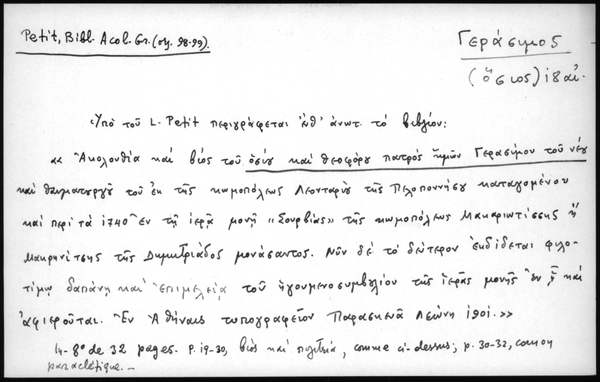 Petit, Bibl. Acol. Gr. (σελ. 98-99).
Γεράσιμος
(ὅσιος) ιη αἰ.
Ὑπὸ τοῦ L. Petit περιγράφεται ἐνθ' ἀνωτ. τὸ βιβλίον:
«Ἀκολουθία καὶ βίος τοῦ ὁσίου καὶ θεοφόρου πατρὸς ἡμῶν Γερασίμου τοῦ νέου
καὶ θαυματουργοῦ τοῦ ἐκ τῆς κωμοπόλεως Λεονταρίου τῆς Πελοποννήσου καταγομένου
καὶ περὶ τὰ 1740 ἐν τῇ ἱερᾷ μονῇ «Σουρβίας» τῆς κωμοπόλεως Μακριντίσσης ἢ
Μακρινίτσης τῆς Δημητριάδος μονάσαντος. Νῦν δὲ τὸ δεύτερον ἐκδίδεται φιλο-
τίμῳ δαπάνῃ καὶ ἐπιμελείᾳ τοῦ ἡγουμενοσυμβουλίου τῆς ἱερᾶς μονῆς ἐν ᾗ καὶ
ἀφιεροῦται. Ἐν Ἀθήναις τυπογραφεῖον Παρασκευᾶ Λεώνη 1901.»
In-8º de 32 pages. P. 19-30, βίος καὶ πολιτεία, comme ci-dessus; p. 30-32, canon
paraclétique. –